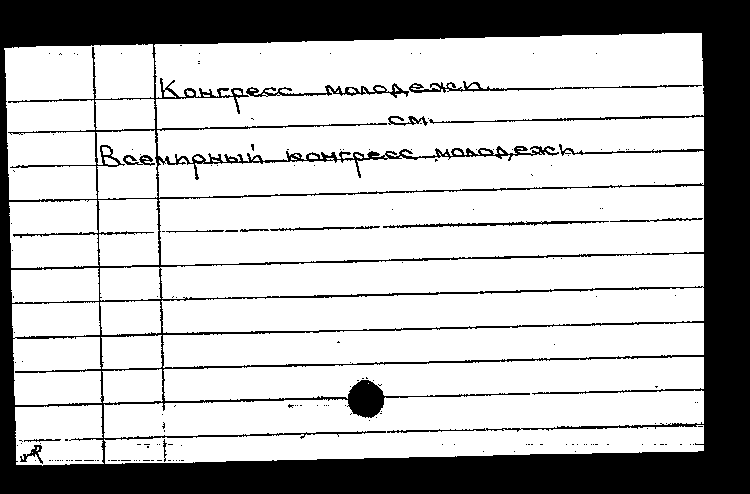 Конгресс молодежи.
см.
Всемирный конгресс молодежи.